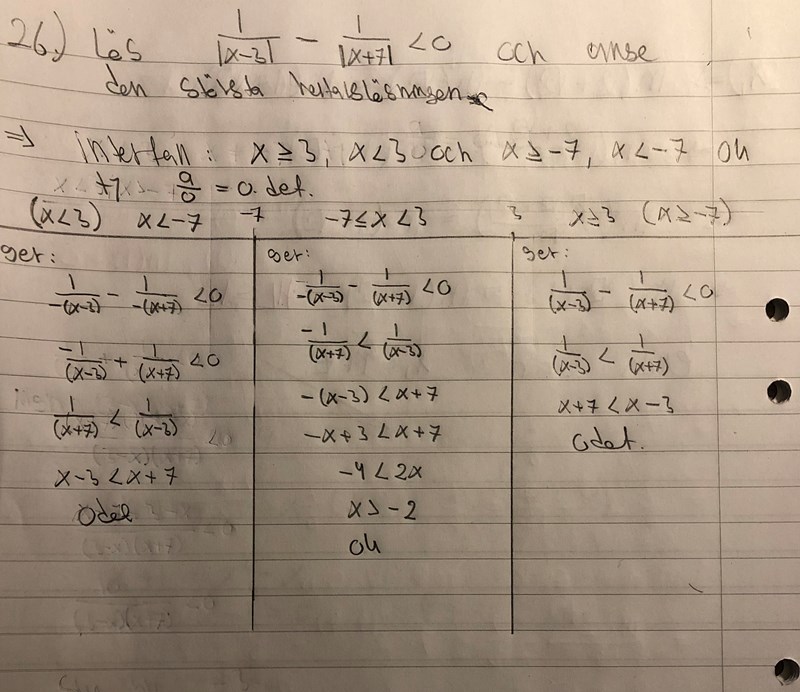 26.) Lös 1/|x-3| - 1/|x+7| < 0 och ange
den största heltalslösningen
⇒ interfall: x ≥ 3, x < 3 och x ≥ -7, x < -7 Ok
0/0 = o.def.
(x<3) x < -7 -7 -7 ≤ x < 3 3 x ≥ 3 (x ≥ -7)
ger:
1/-(x-3) - 1/-(x+7) < 0
-1/(x-3) + 1/(x+7) < 0
1/(x+7) < 1/(x-3)
x-3 < x+7
Odef
ger:
1/-(x-3) - 1/(x+7) < 0
-1/(x+7) < 1/(x-3)
-(x-3) < x+7
-x+3 < x+7
-4 < 2x
x > -2
Ok
ger:
1/(x-3) - 1/(x+7) < 0
1/(x-3) < 1/(x+7)
x+7 < x-3
Odef.